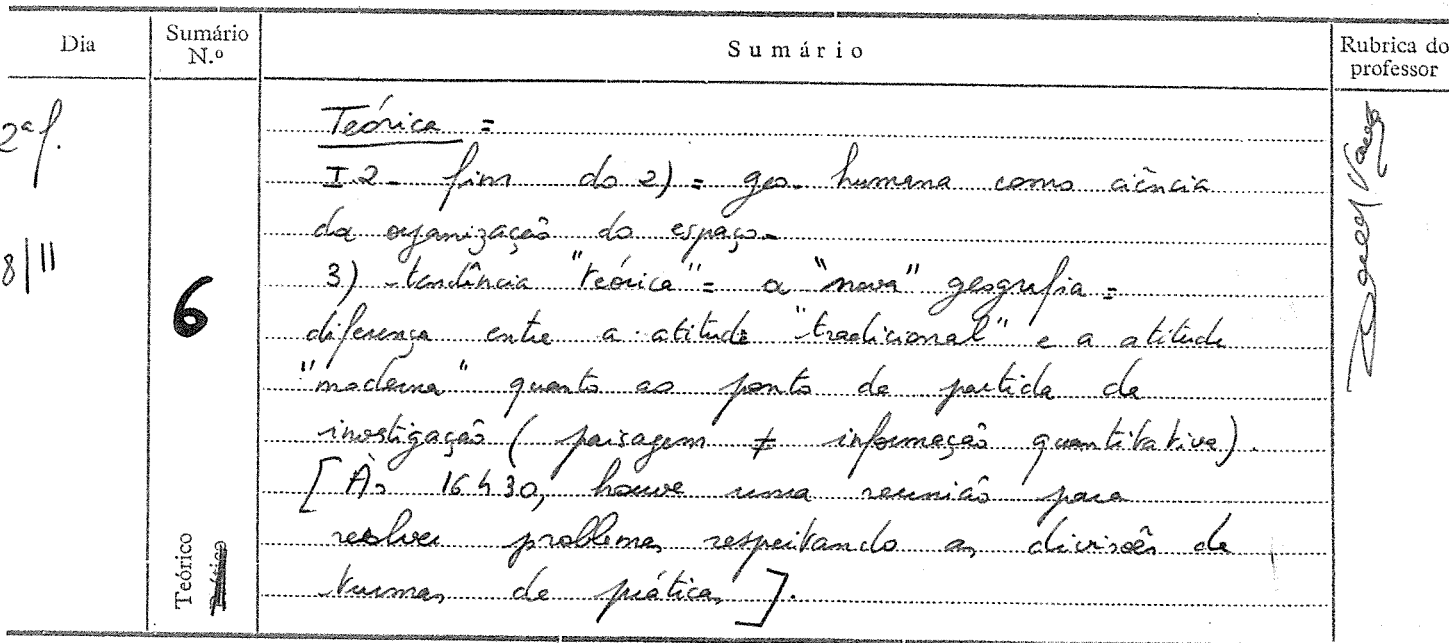 Dia
Sumário N.º
Sumário
Rubrica do professor
2ª f.
8/11
6
Teórico
Teórica =
I.2 - fim do 2) = geo. humana como ciência
da organização do espaço.
3) - tendência "teórica" = a "nova" geografia =
diferença entre a atitude "tradicional" e a atitude
"moderna" quanto ao ponto de partida da
investigação (paisagem ≠ informação quantitativa).
[Às 16h30, houve uma reunião para
resolver problemas respeitando as divisões de
turmas de práticas].